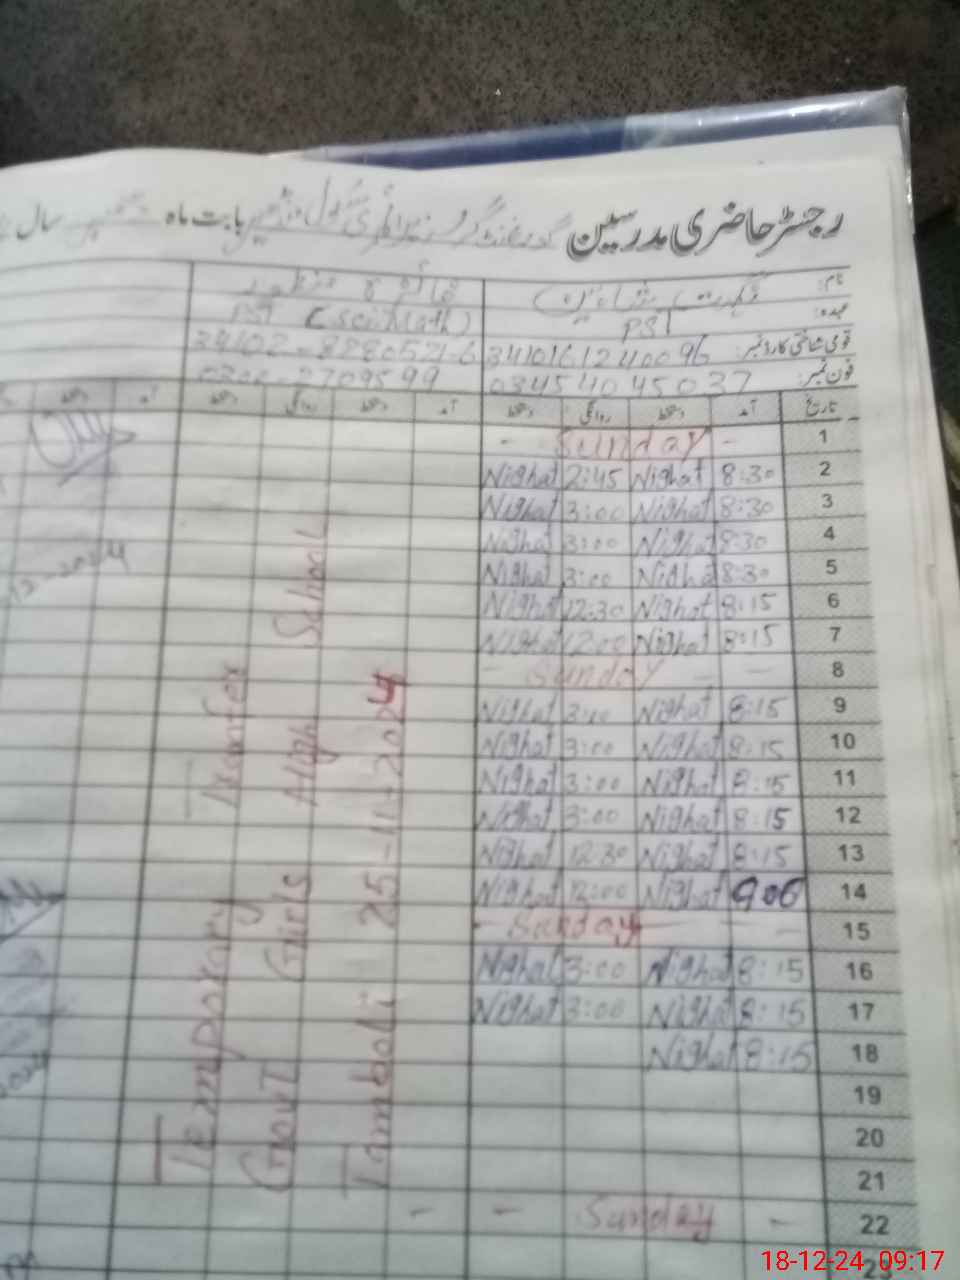 رجسٹر حاضری مدرسین گورنمنٹ گرلز پرائمری سکول بابت ماہ دسمبر سال
نام: نگہت شاہین
عہدہ: PST PST (Sci Math)
قومی شناختی کارڈ نمبر: 3410161240096
فون نمبر: 03454045037
تاریخ آمد دستخط روانگی دستخط آمد دستخط روانگی دستخط آمد دستخط
1 - Sunday -
2 8:30 Nighat 2:45 Nighat
3 8:30 Nighat 3:00 Nighat
4 8:30 Nighat 3:00 Nighat
5 8:30 Nigha 3:00 Nighat
6 8:15 Nighat 12:30 Nighat
7 8:15 Nighat 12:00 Nighat
8 - Sunday - -
9 8:15 Nighat 3:00 Nighat
10 8:15 Nighat 3:00 Nighat
11 8:15 Nighat 3:00 Nighat
12 8:15 Nighat 3:00 Nighat
13 8:15 Nighat 12:30 Nighat
14 9:00 Nighat 12:00 Nighat
15 - Sunday - -
16 8:15 Nighat 3:00 Nighat
17 8:15 Nighat 3:00 Nighat
18 8:15 Nighat
19
20
21
22 - Sunday - -
Temporary Transfer
Govt Girls High School
Tamboli 25-11-2024
12-2024
2024
18-12-24 09:17